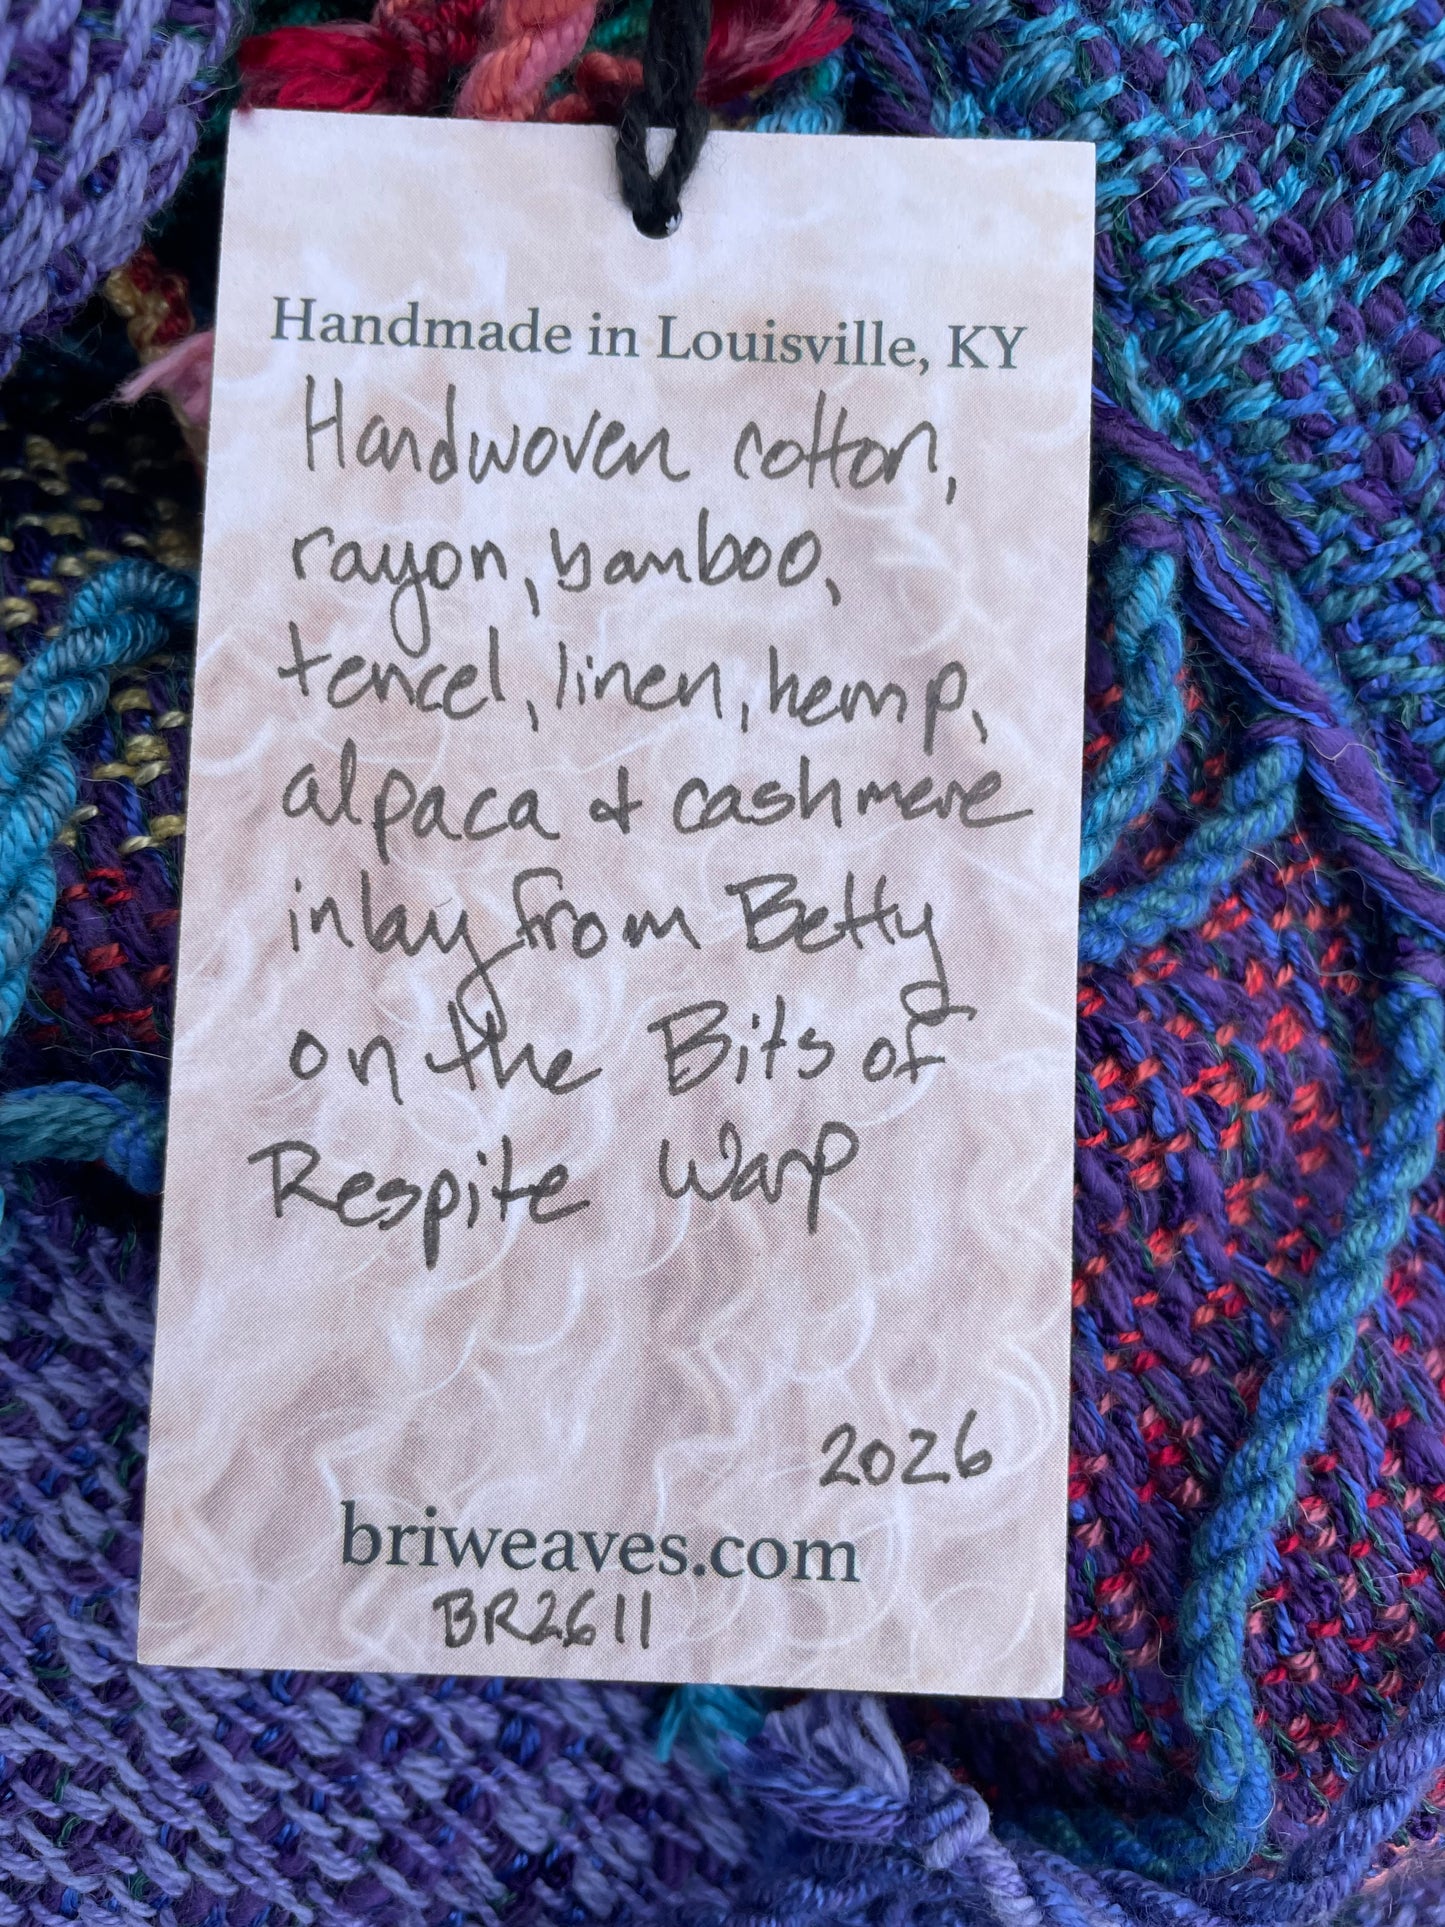 Handmade in Louisville, KY
Handwoven cotton,
rayon, bamboo,
tencel, linen, hemp,
alpaca & cashmere
inlay from Betty
on the Bits of
Respite Warp
2026
briweaves.com
BR2611